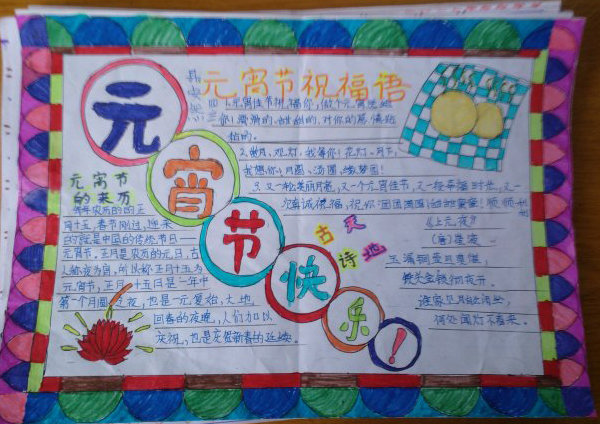 元宵节祝福语
1.元宵佳节祝福你,做个元宵送给
你!滑滑的,甜甜的,对你的感情
2.赏月,观灯,我等你!花灯,月下,
我想你!月圆、汤圆,缘梦圆!
3.又一轮美丽月亮,又一个元宵佳节,又一段幸福时光,又一
真诚得福,祝你团团圆圆
元
宵
节
快
乐
!
元宵节
的来历
每年农历的的正
月十五,春节刚过,迎来
的就是中国的传统节日——
元宵节。正月是农历的元月,古
人称夜为宵,所以称正月十五为
元宵节,正月十五日是一年中
第一个月圆之夜,也是一元复始,大地
回春的夜晚,人们加以
庆祝,也是庆贺新春的延续。
古
诗
《上元夜》
(唐)崔液
玉漏铜壶且莫催,
铁关金锁彻夜开。
谁家见月能闲坐,
何处闻灯不看来。